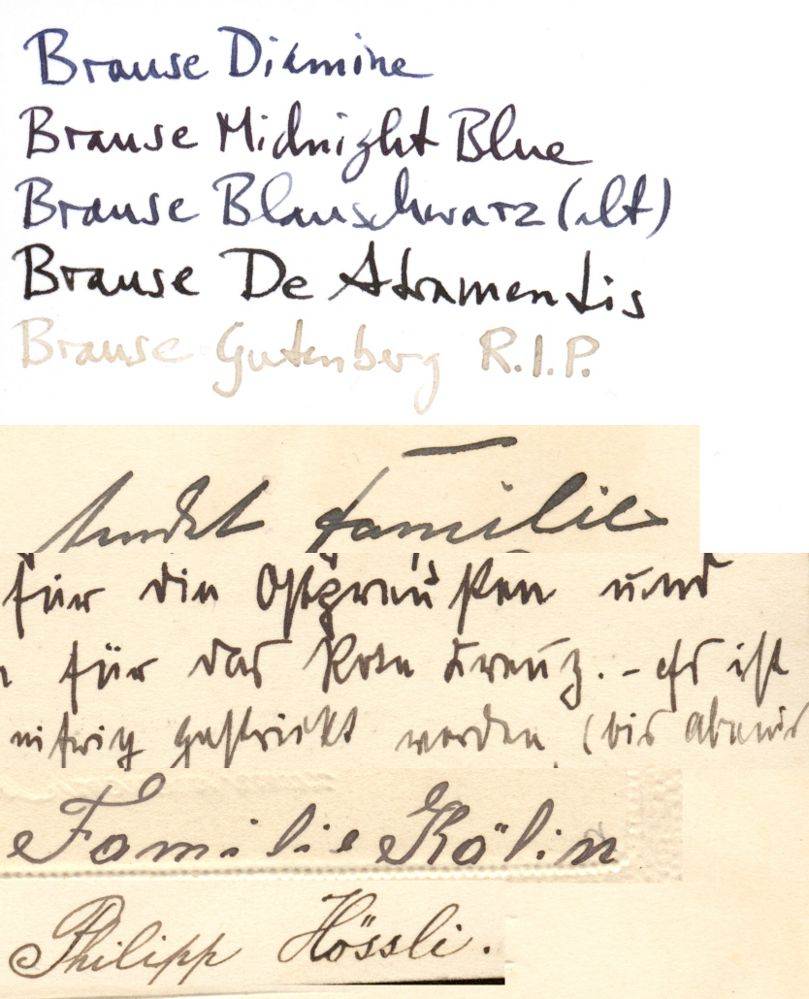 Brause Diamine
Brause Midnight Blue
Brause Blauschwarz (alt)
Brause De Atramentis
Brause Gutenberg R.I.P.
Familie
für die Ostpreußen und
für das Rote Kreuz. – Es ist
eifrig gestrickt worden (bis abends
Familie Kälin
Philipp Hössli.